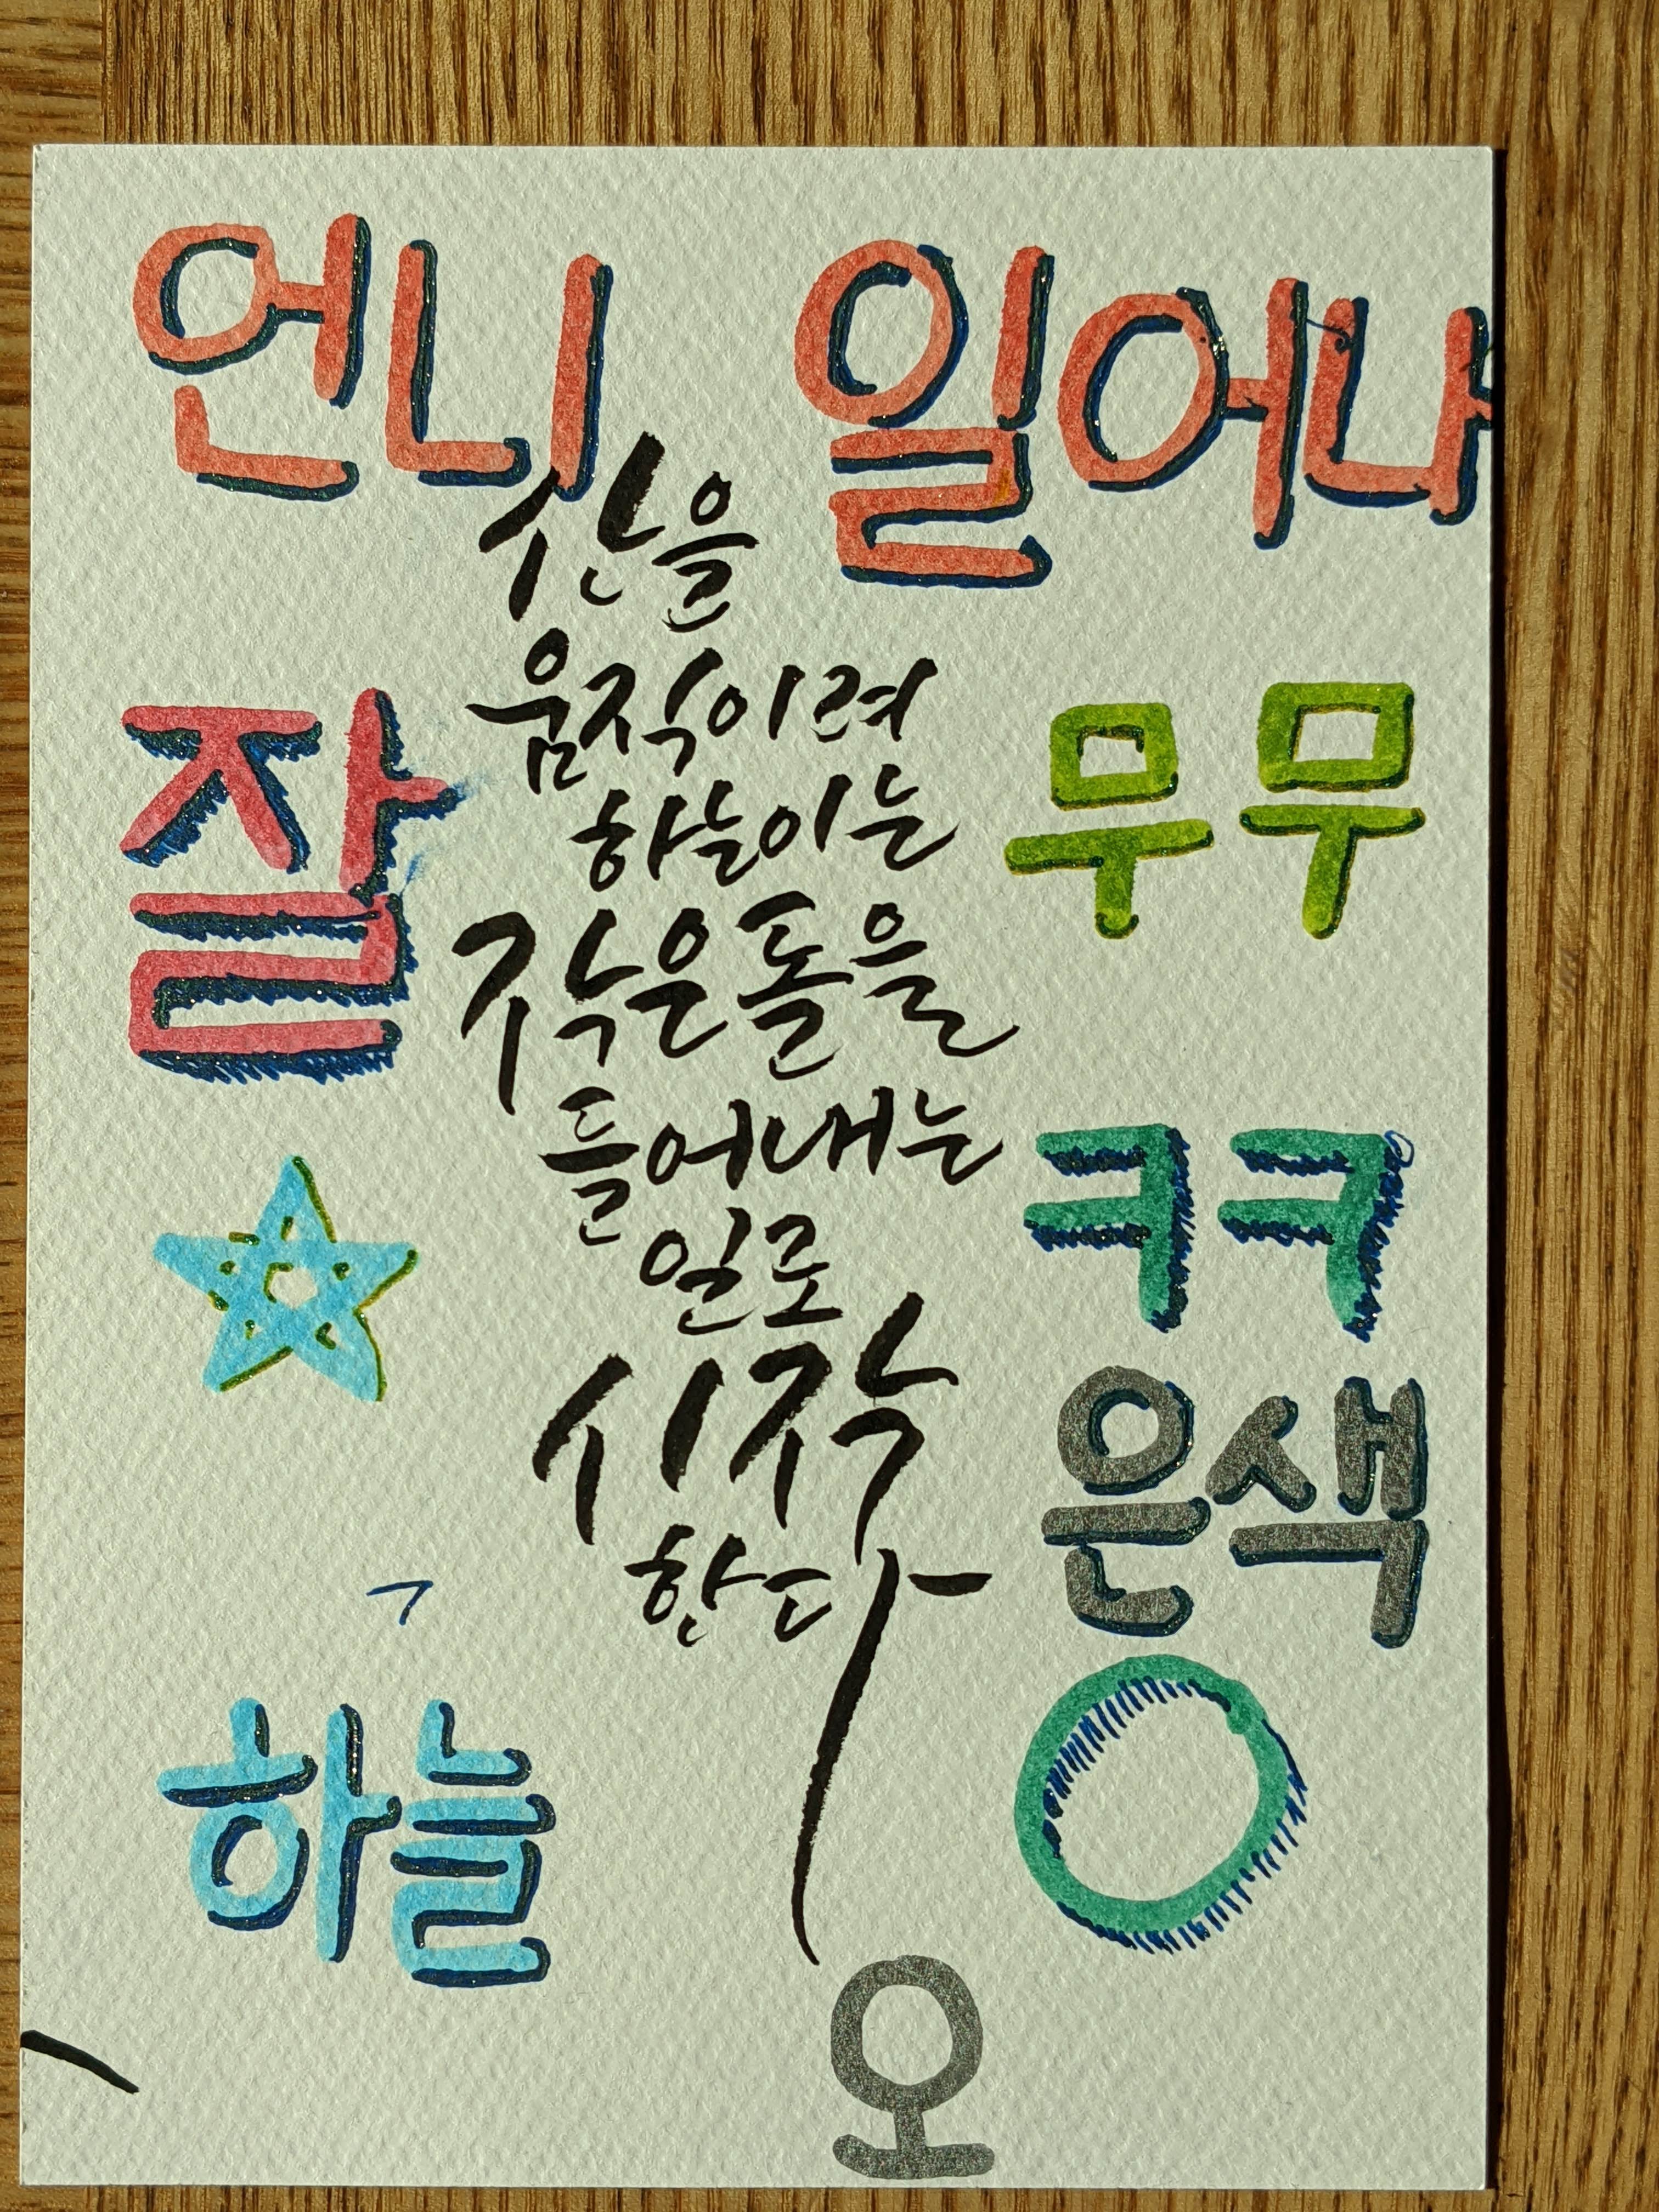 언니 일어나
산을
움직이려
하늘이는
작은 돌을
들어내는
일로
시작
한다
잘
무무
ㅋㅋ
은색
하늘
오